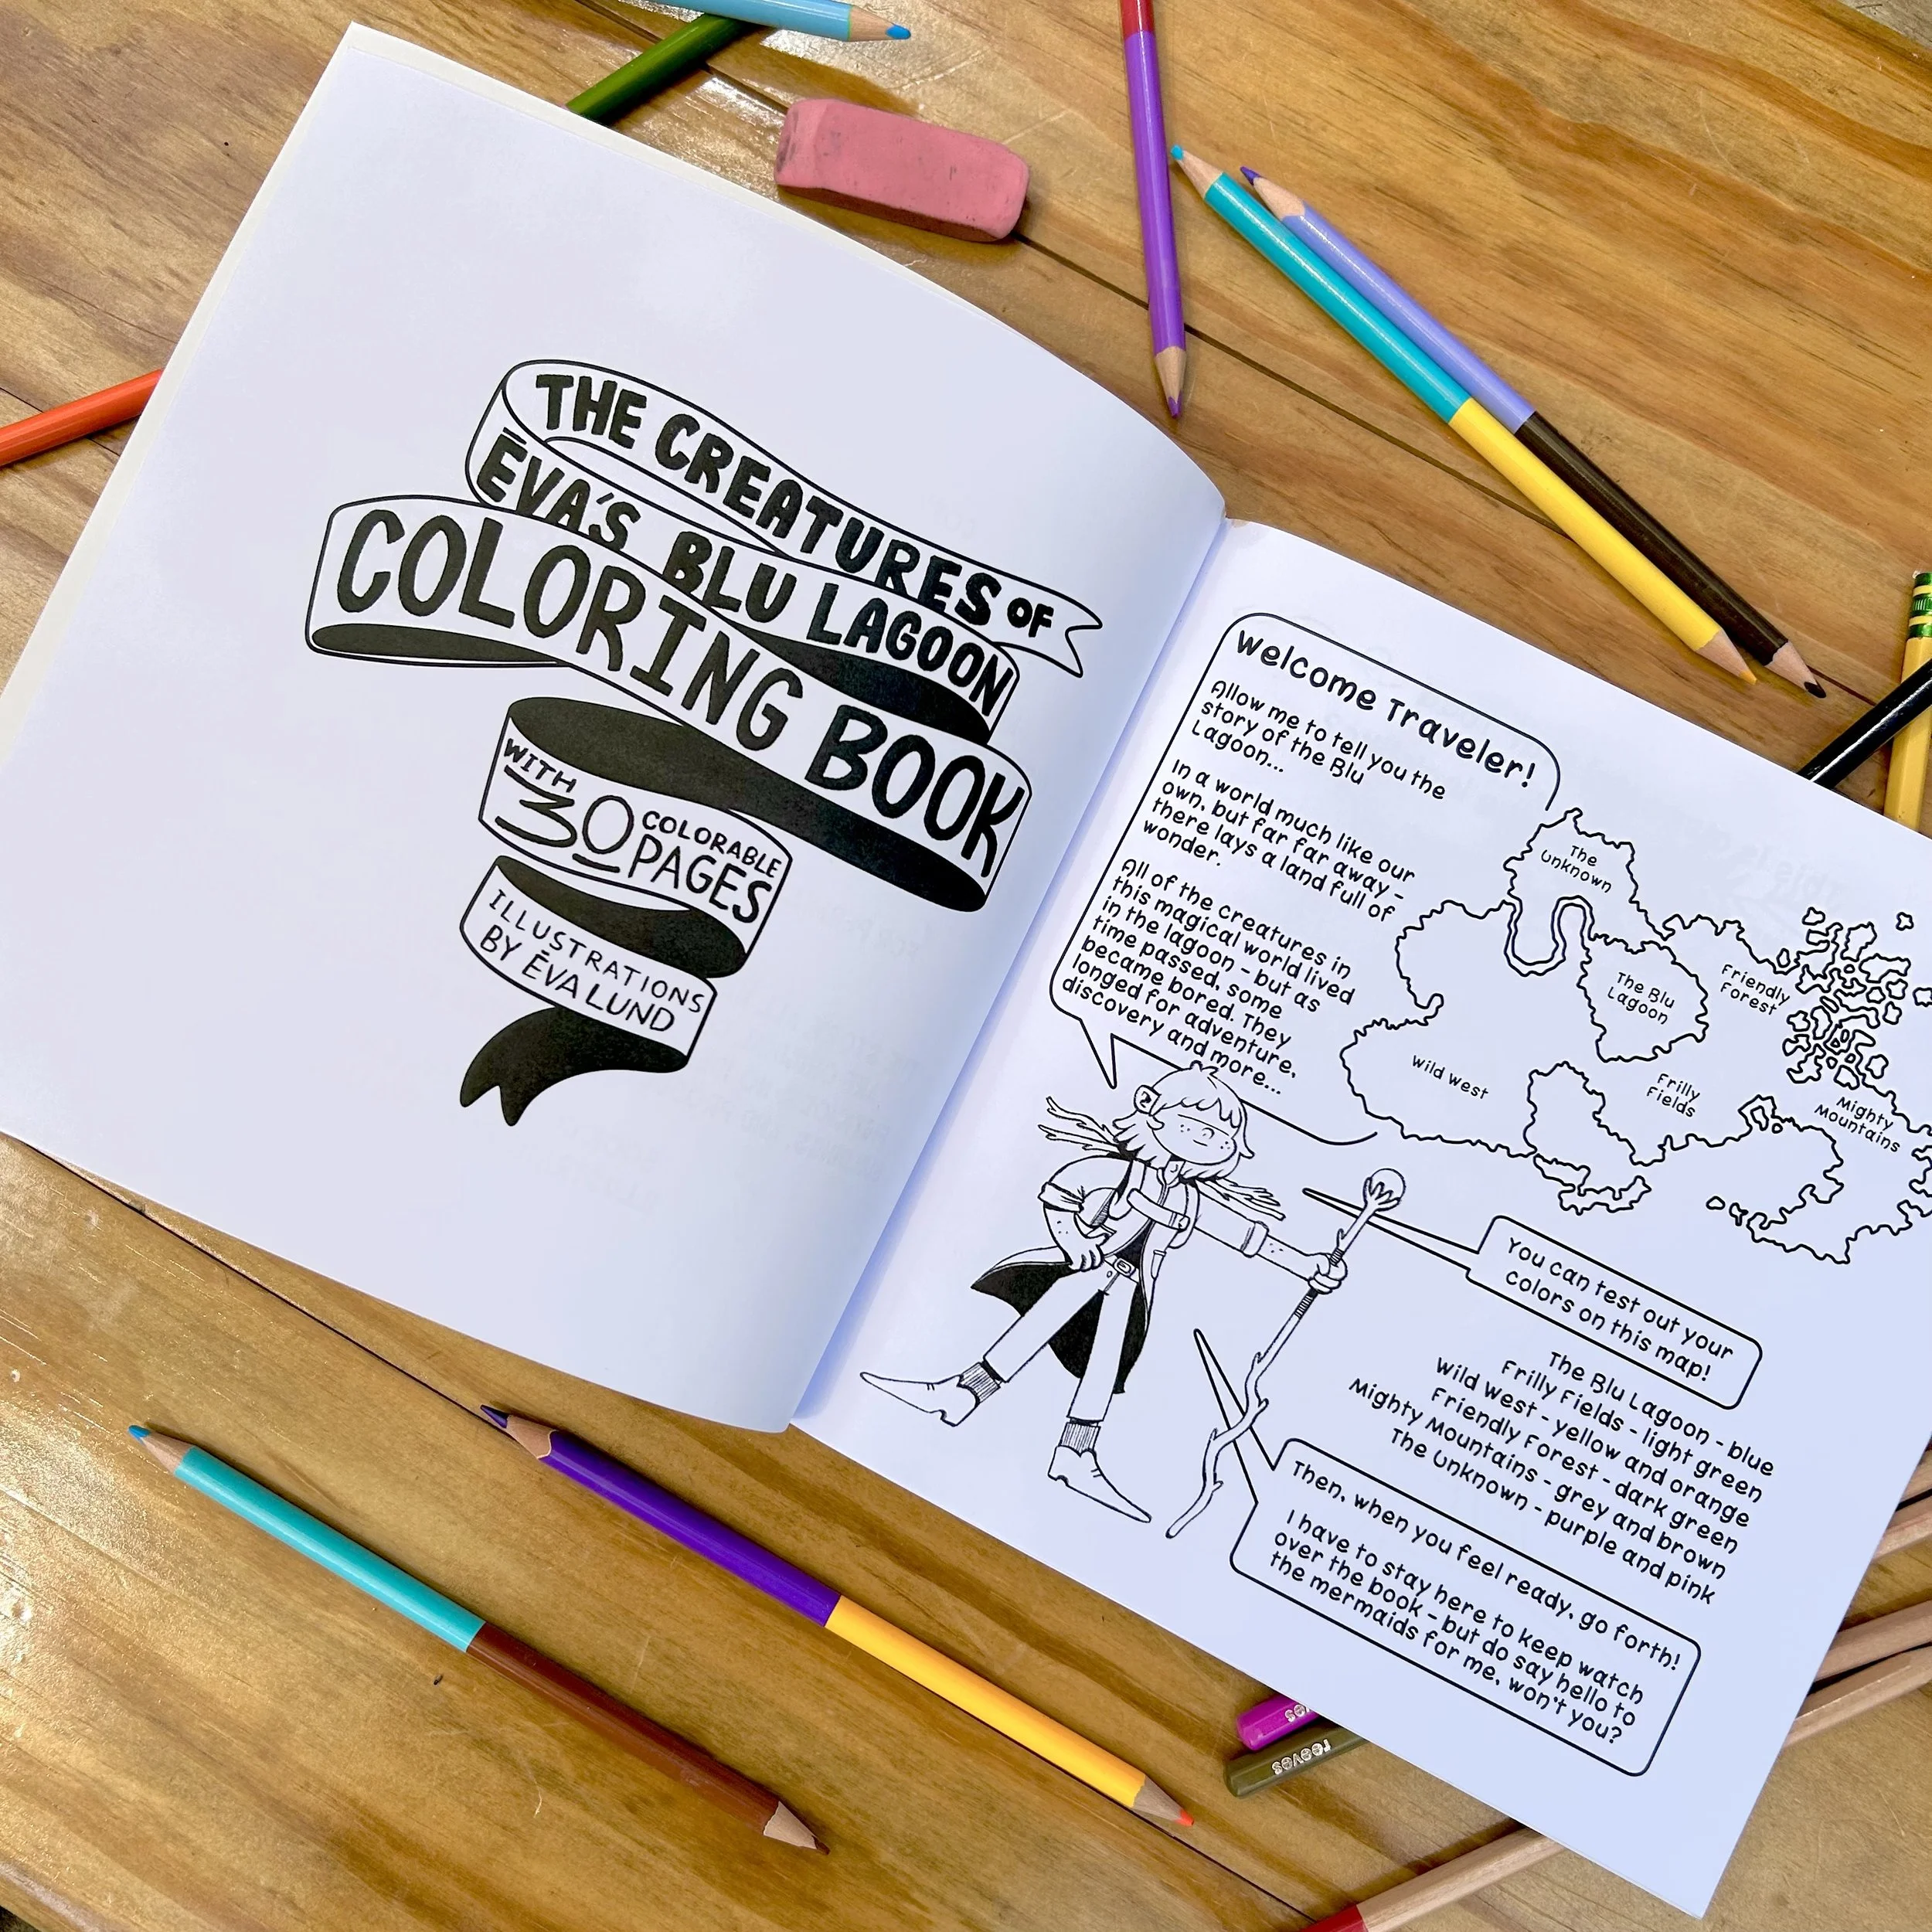 THE CREATURES OF
ĒVA'S BLU LAGOON
COLORING BOOK
WITH
30 COLORABLE
PAGES
ILLUSTRATIONS
BY ĒVA LUND
Welcome Traveler!
Allow me to tell you the
story of the Blu
Lagoon...
In a world much like our
own, but far far away -
there lays a land full of
wonder.
All of the creatures in
this magical world lived
in the lagoon - but as
time passed, some
became bored. They
longed for adventure,
discovery and more...
The
Unknown
The Blu
Lagoon
Friendly
Forest
Wild West
Frilly
Fields
Mighty
Mountains
You can test out your
colors on this map!
The Blu Lagoon - blue
Frilly Fields - light green
Wild West - yellow and orange
Friendly Forest - dark green
Mighty Mountains - grey and brown
The Unknown - purple and pink
Then, when you feel ready, go forth!
I have to stay here to keep watch
over the book - but do say hello to
the mermaids for me, won't you?
reeves